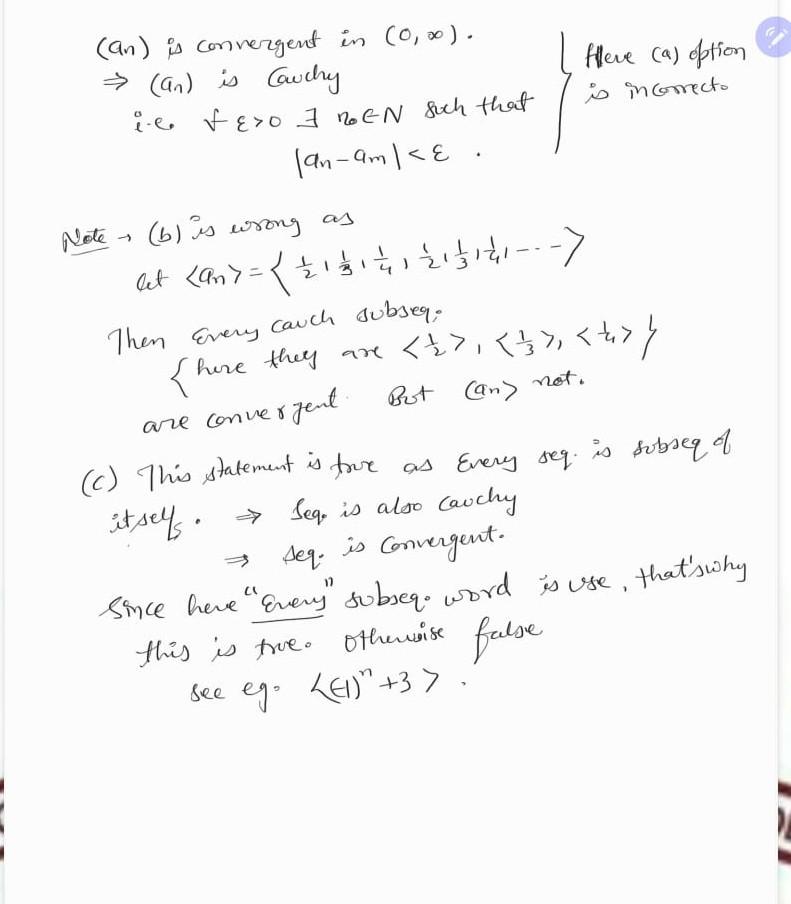 (an) is convergent in (0, ∞).
⇒ (an) is Cauchy
i.e. ∀ ε>0 ∃ n₀∈N such that
|an - am| < ε .
Here (a) option
is incorrect.
Note → (b) is wrong as
let <an> = { 1/2, 1/3, 1/4, 1/2, 1/3, 1/4, --- >
Then Every cauch subseq.
{ here they are <1/2>, <1/3>, <1/4> }
are convergent. But (an> not.
(c) This statement is true as Every seq. is subseq of
itself. ⇒ Seq. is also Cauchy
⇒ seq. is Convergent.
Since here "Every" subseq. word is use, that's why
this is true. otherwise false
see eg. <(-1)ⁿ+3> .